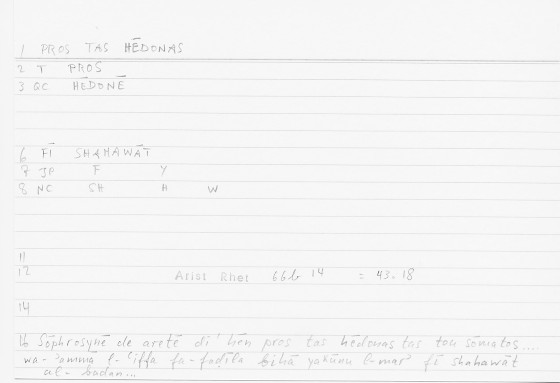 1 PROS TAS HĒDONAS
2 T PROS
3 QC HĒDONĒ
6 FĪ SHAHAWĀT
7 JP F Y
8 NC SH H W
11
12 Arist Rhet 66b 14 = 43.18
14
16 Sōphrosynē de aretē di' hēn pros tas hēdonas tas tou sōmatos....
wa-ʾammā l-ʿiffa fa-faḍīla bihā yakūnu l-marʾ fī shahawāt
al-badan...